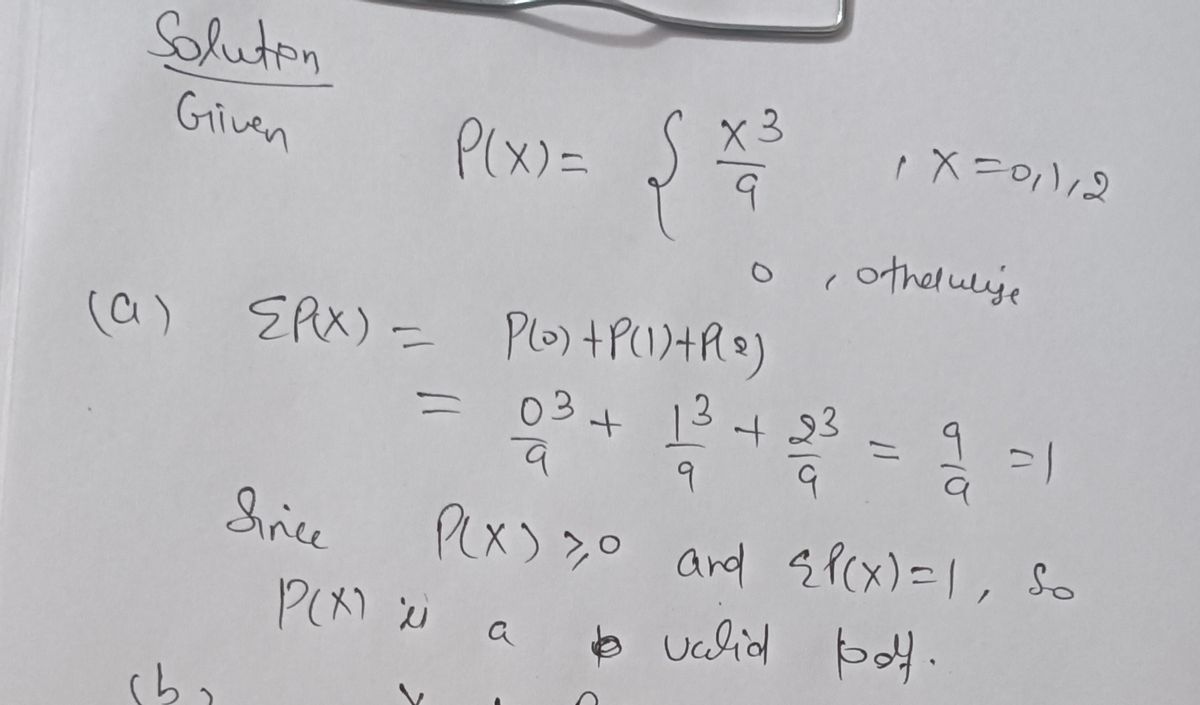 Solution
Given
P(X) = { X³/9 , X=0,1,2
0 , otherwise
(a) ΣP(X) = P(0)+P(1)+P(2)
= 0³/9 + 1³/9 + 2³/9 = 9/9 =1
Since P(X) ≥0 and ΣP(X)=1, So
P(X) is a valid pdf.
(b)